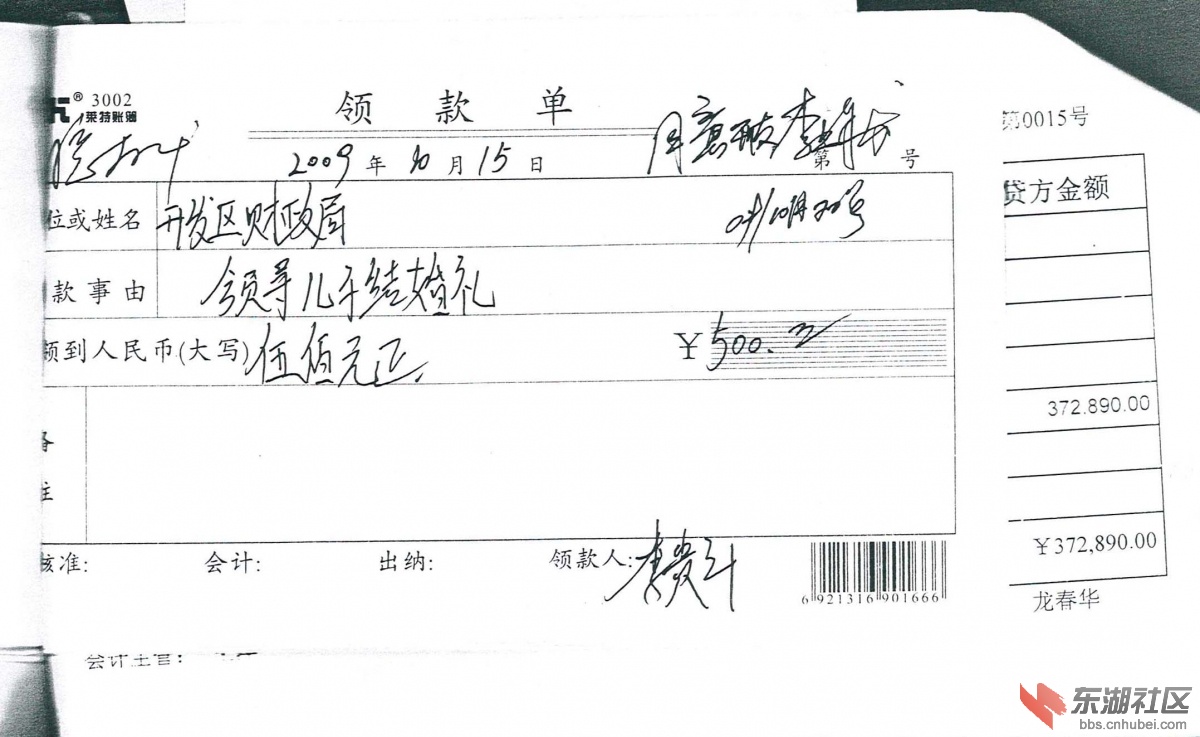 ® 3002
莱特账簿
领 款 单
第0015号
2009 年 10 月 15 日
第 号
位或姓名 开发区财政局
09/10月20号
贷方金额
款事由 领导儿子结婚礼
领到人民币(大写) 伍佰元正. ¥500.
372.890.00
备
注
¥372,890.00
核准: 会计: 出纳: 领款人: 李贵斗
6 921316 901666
龙春华
会计主管:
东湖社区
bbs.cnhubei.com